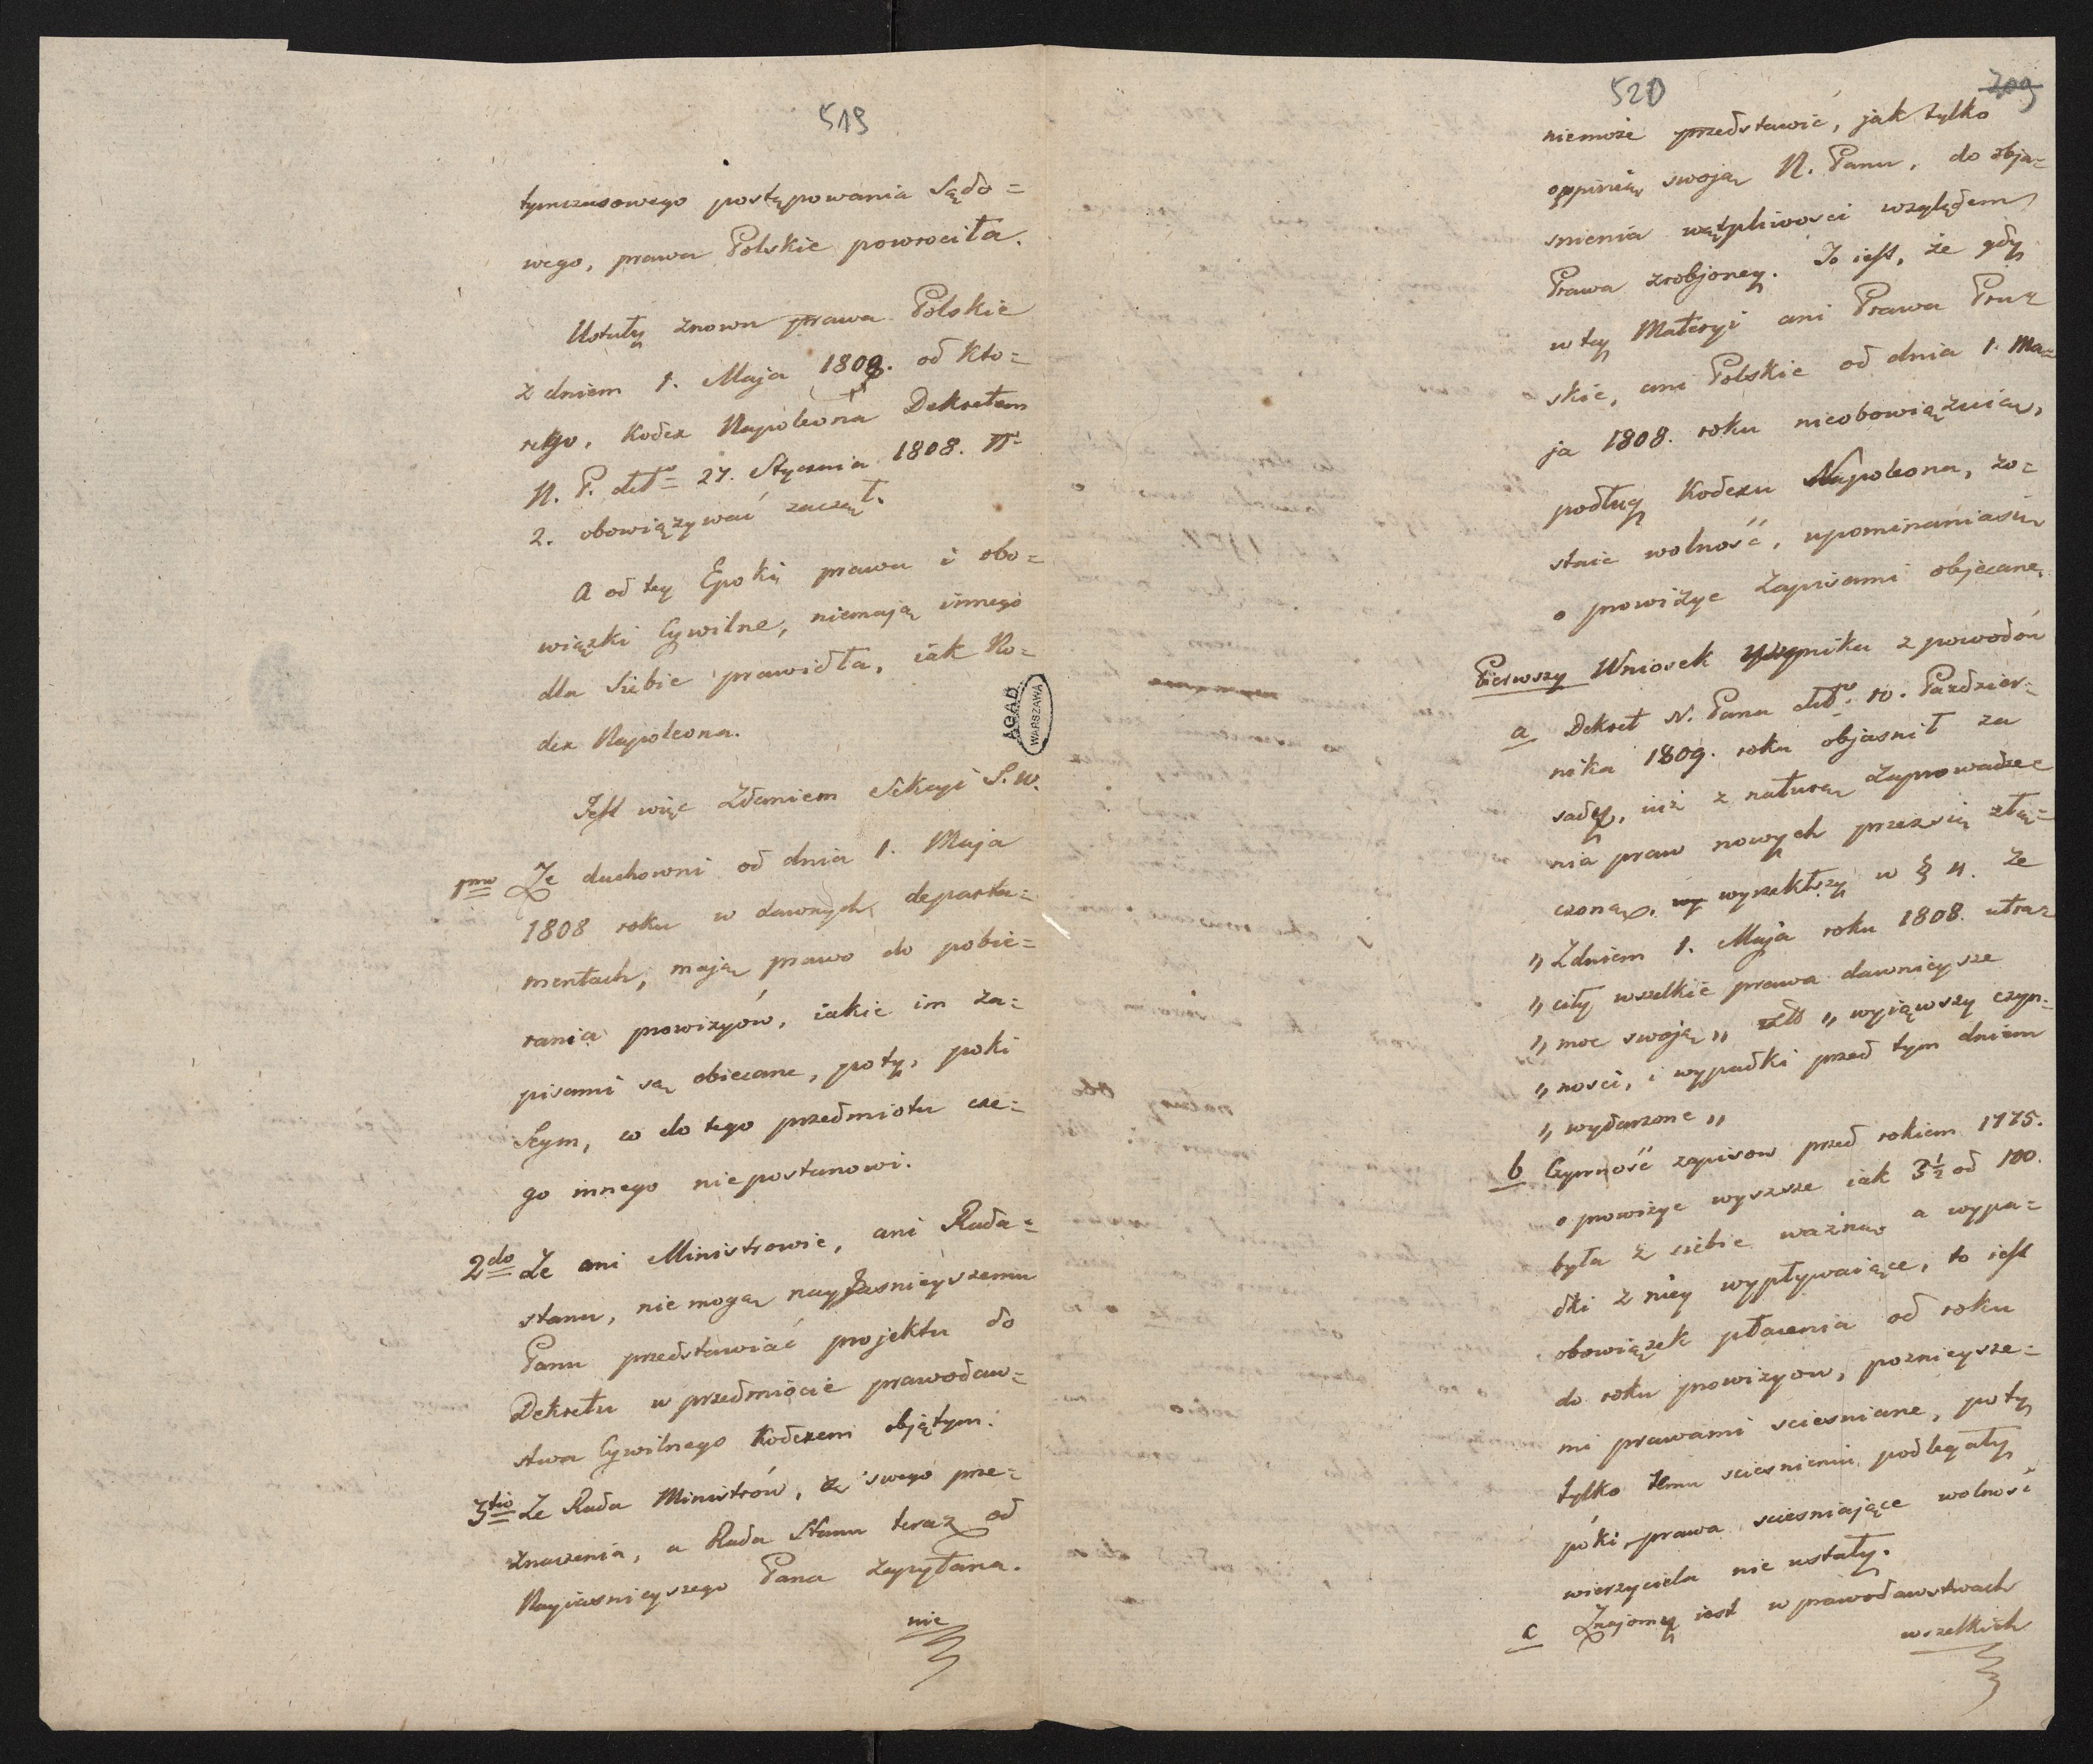 519
tymczasowego postępowania Sądo=
wego, prawa Polskie powrociła.
Ustały znowu prawa Polskie
z dniem 1. Maja 1808. od kto=
rego, Kodex Napoleona Dekretem
N. P. dtto 27. Stycznia 1808.
2. obowiązywać zaczął.
A od tey Epoki prawa i obo=
wiązki Cywilne, niemają innego
dla siebie prawidła, iak Ko=
dex Napoleona.
Jest więc zdaniem Sekcyi S. W.
1mo Ze duchowni od dnia 1. Maja
1808 roku w dawnych departa=
mentach, mają prawo do pobie=
rania prowizyów, iakie im za=
pisami są obiecane, poty, poki
Seym, co do tego przedmiotu cze=
go innego niepostanowi.
2do Ze ani Ministrowie, ani Rada=
stanu, nie mogą nayjasnieyszemu
Panu przedstawiać projektu do
Dekretu w przedmiocie prawodaw=
stwa Cywilnego Kodexem objętym.
3tio Ze Rada Ministrów, ze swego prze=
znaczenia, a Rada Stanu teraz od
Nayiasnieyszego Pana zapytana.
nie
AGAD
WARSZAWA
520
209
niemoże przedstawić, jak tylko
oppinią swoją N. Panu, do obja=
snienia wątpliwosci względem
Prawa zrobjoney. To iest, że gdy
w tey Materyi ani Prawa Pru=
skie, ani Polskie od dnia 1. Ma=
ja 1808. roku nieobowiązuią,
podług Kodexu Napoleona, zo=
staie wolność, upominaniasię
o prowizye Zapisami objecane.
Pierwszy Wniosek wynika z powodów
a Dekret N. Pana dtto 10. Pazdzier=
nika 1809. roku objasnił za
sadę, iuż z naturą Zaprowadze
nia praw nowych przezsię złą=
czoną, wy wyrzekłszy w § 4. Ze
„ Z dniem 1. Maja roku 1808. utra=
„ ciły wszelkie prawa dawnieysze
„ moc swoją „ „ wyiąwszy czyn=
„ nosci, i wypadki przed tym dniem
„ wydarzone „
b Czynność zapisow przed rokiem 1775.
o prowizye wyzsze iak 3½ od 100.
była z siebie ważną, a wypa=
dki z niey wypływaiące, to iest
obowiązek płacenia od roku
do roku prowizyow, poznieysze=
mi prawami sciesniane, poty
tylko temu sciesnieniu podlegały
póki prawa sciesniające wolność
wierzyciela nie ustały.
c Znajomą iest w prawodawstwach
wszelkich